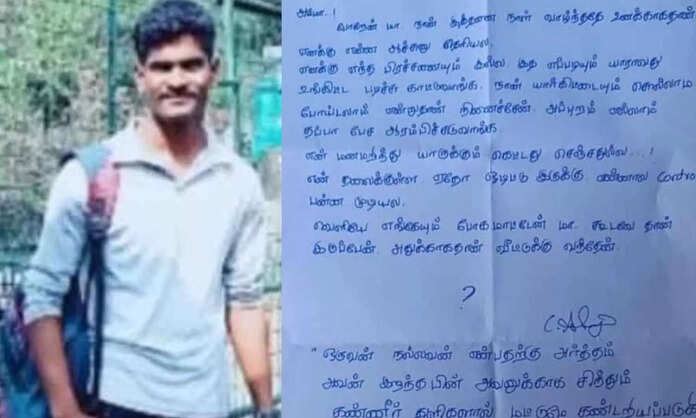 அம்மா..!
போறேன் மா. நான் இத்தனை நாள் வாழ்ந்ததே உனக்காகதான்
எனக்கு என்ன ஆச்சுனு தெரியல.
எனக்கு எந்த பிரச்சனையும் இல்ல. இத எப்படியும் யாராவது
உங்கிட்ட படிச்சு காமிப்பாங்க. நான் யார்கிட்டையும் சொல்லாம
போய்டலாம் என்றுதான் நினைச்சேன். அப்புறம் எல்லாம்
தப்பா பேச ஆரம்பிச்சுடுவாங்க.
என் மனமறிந்து யாருக்கும் கெட்டது செஞ்சதில்ல...!
என் தலைக்குள்ள ஏதோ ஓடிட்டு இருக்கு என்னால Contro
பண்ண முடியல.
வெளிய எங்கேயும் போகமாட்டேன் மா. கூடவே தான்
இருப்பேன். அதுக்காகதான் வீட்டுக்கு வந்தேன்.
?
"ஒருவன் நல்லவன் என்பதற்கு அர்த்தம்
அவன் இறந்தபின் அவனுக்காக சிந்தும்
கண்ணீர் துளிகளால்